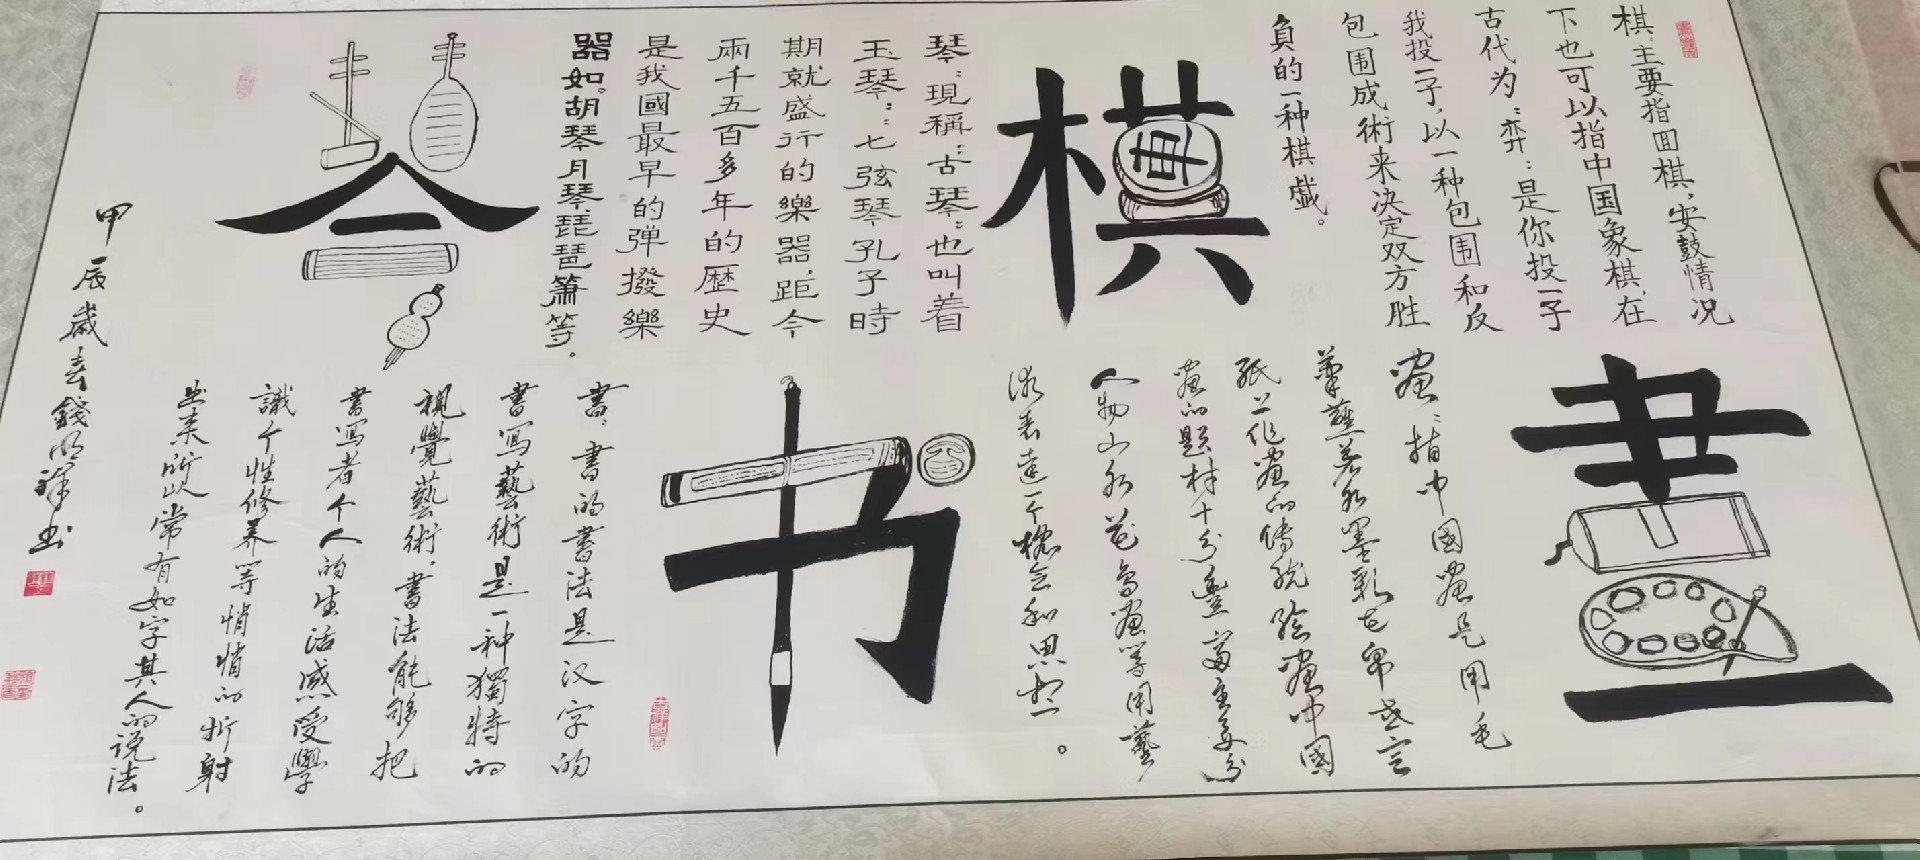 棋:主要指回棋,安鼓情况
下也可以指中国象棋,在
古代为:弈:是你投一子
我投一子,以一种包围和反
包围成術来决定双方胜
負的一种棋戯。
棋
琴:現稱:古琴:也叫着
玉琴:七弦琴孔子時
期就盛行的樂器,距今
兩千五百多年的歷史
是我國最早的弹撥樂
器如:胡琴月琴琵琶箫等。
畫
画:指中國画是用毛
筆蘸着水墨彩在帛或宣
紙上作画的傳統绘画中國
画的题材十分豐富主要分
人物山水花鸟画等用藝
術表達一个概念和思想。
书
書:書的書法是汉字的
書写藝術是一种獨特的
視覺藝術,書法能够把
書写者个人的生活感受學
識个性修养等悄悄的折射
出来所以常有如字其人的说法。
甲辰歲春錢明祥书